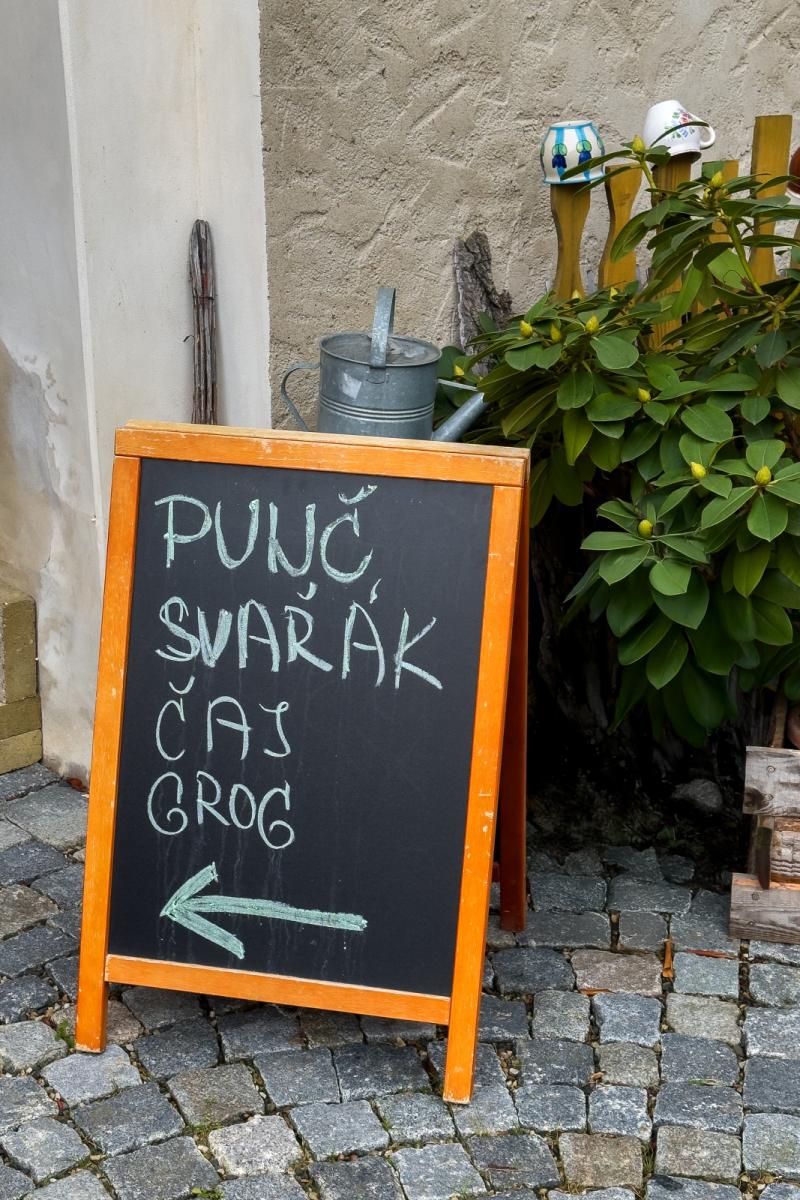 PUNČ
SVAŘÁK
ČAJ
GROG